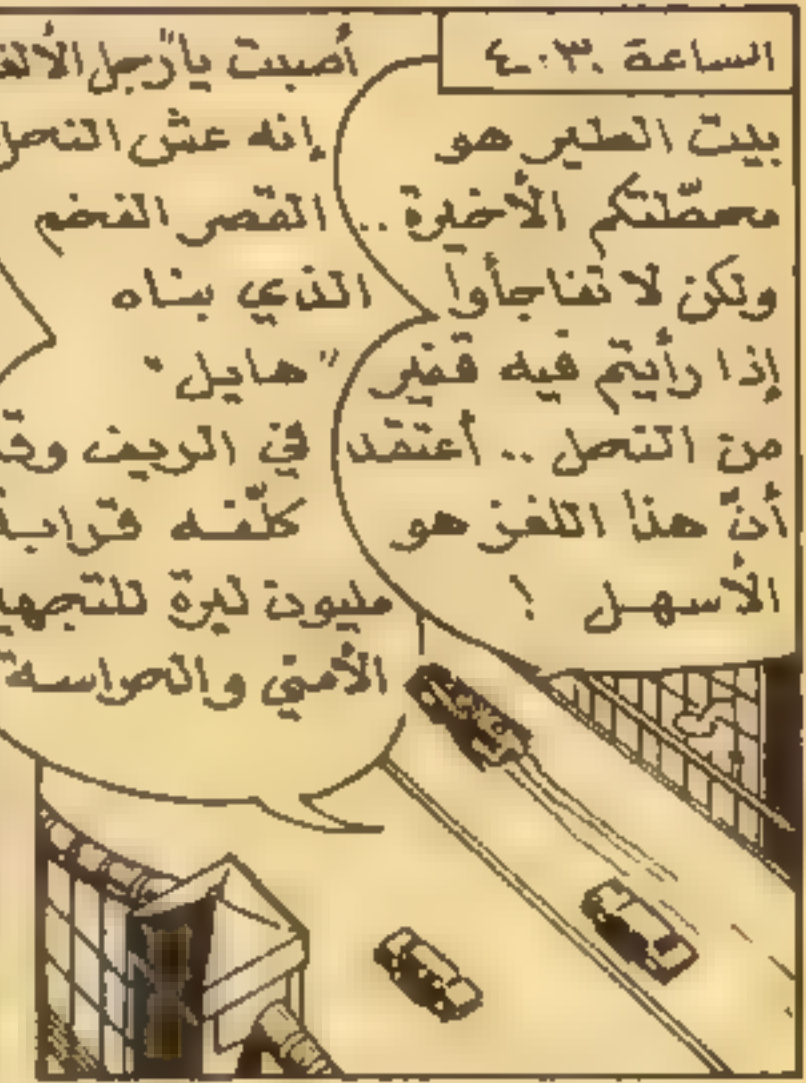 الساعة ٤٠٣٠
بيت الطير هو
محطّتكم الأخيرة ..
ولكن لا تفاجأوا
إذا رأيتم فيه قفير
من النحل .. أعتقد
أنّ هذا اللغز هو
الأسهل !
أصبت يا رجل
إنه عش النحل
القصر الفخم
الذي بناه
"هايل"
في الريف وقد
كلّفه قرابة
مليون ليرة للتجهيز
الأمني والحراسة